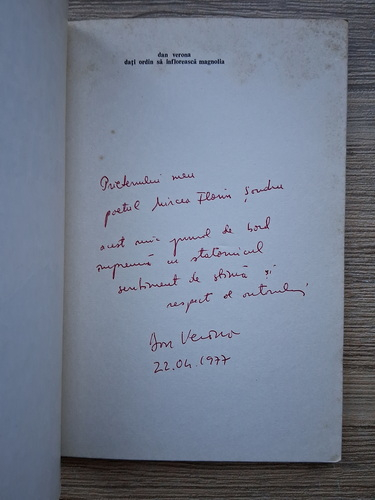 dan verona
dați ordin să înflorească magnolia
Prietenului meu
poetul Mircea Florin Șandru
acest mic jurnal de bord
împreună cu statornicul
sentiment de stimă și
respect al autorului,
Dan Verona
22.04.1977